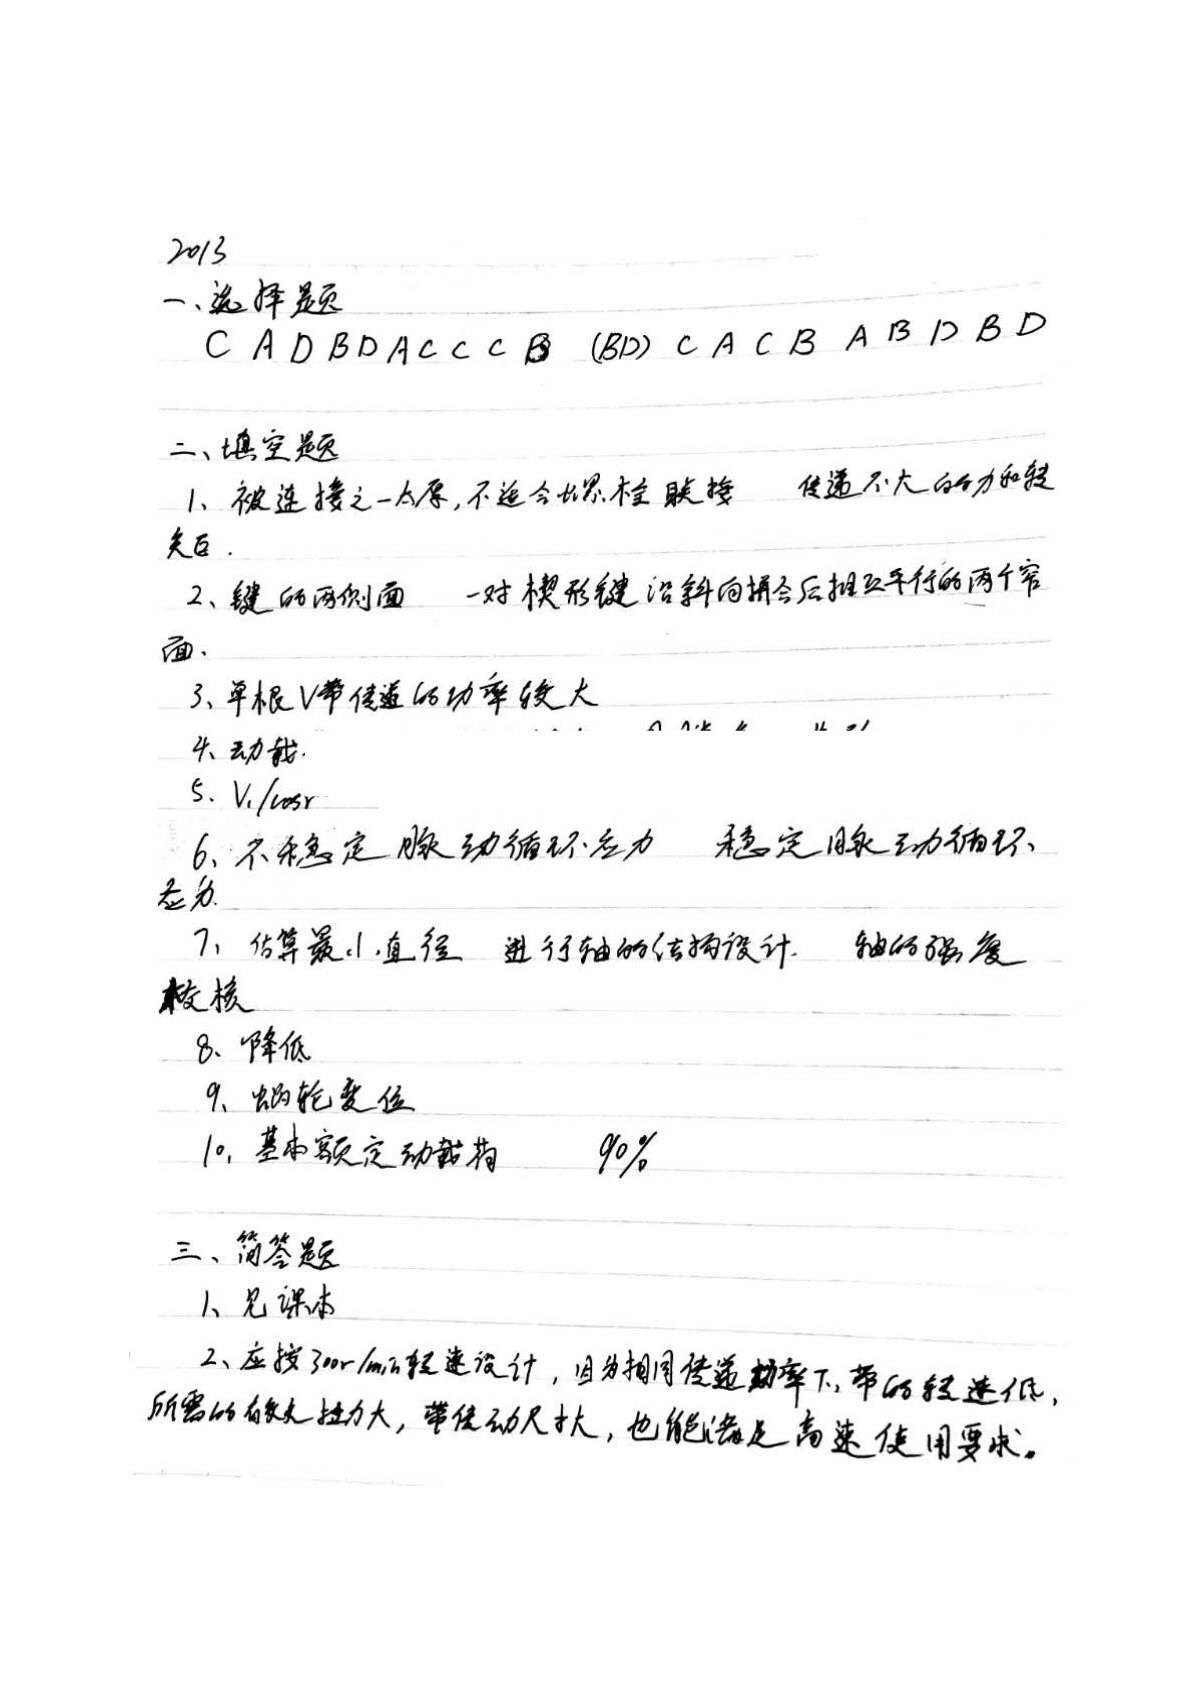 2013
一、选择题
C A D B D A C C C B (BD) C A C B A B D B D
二、填空题
1、被连接之一太厚,不适合螺栓联接 传递不大的力和转
矩.
2、键的两侧面 一对楔形键沿斜面拼合后相互平行的两个窄
面.
3、单根V带传递的功率较大
4、动载.
5. V₁/cosr
6、不稳定脉动循环应力 稳定脉动循环
应力.
7、估算最小直径 进行轴的结构设计. 轴的强度
校核
8、降低
9、蜗轮变位
10、基本额定动载荷 90%
三、简答题
1、见课本
2、应按300r/min转速设计,因为相同传递功率下,带的转速低,
所需的有效拉力大,带传动尺寸大,也能满足高速使用要求。